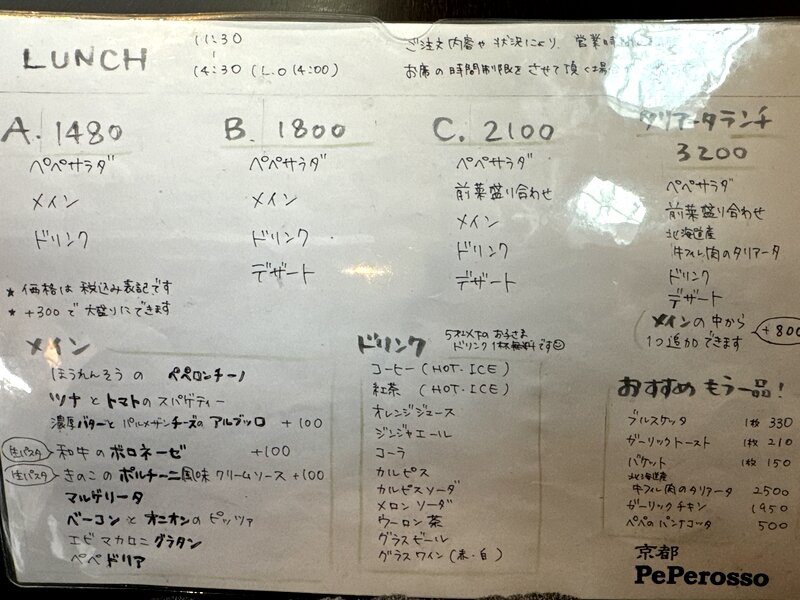 LUNCH
11:30
|
14:30 (L.O 14:00)
ご注文内容や状況により、営業時
お席の時間制限をさせて頂く場
A. 1480
ペペサラダ
メイン
ドリンク
B. 1800
ペペサラダ
メイン
ドリンク
デザート
C. 2100
ペペサラダ
前菜盛り合わせ
メイン
ドリンク
デザート
タリアータランチ
3200
ペペサラダ
前菜盛り合わせ
北海道産
牛フィレ肉のタリアータ
ドリンク
デザート
メインの中から
1つ追加できます
+800
* 価格は税込み表記です
* +300で大盛りにできます
メイン
ほうれんそうの ペペロンチーノ
ツナとトマトのスパゲティー
濃厚バターとパルメザンチーズの アルフレッド +100
生パスタ 和牛のボロネーゼ +100
生パスタ きのこのポルチーニ風味クリームソース +100
マルゲリータ
ベーコンとオニオンのピッツァ
エビマカロニグラタン
ペペドリア
ドリンク
のお子さま
ドリンク1杯無料です
コーヒー (HOT・ICE)
紅茶 (HOT・ICE)
オレンジジュース
ジンジャエール
コーラ
カルピス
カルピスソーダ
メロンソーダ
ウーロン茶
グラスビール
グラスワイン (赤・白)
おすすめ もう一品!
ブルスケッタ 1枚 330
ガーリックトースト 1枚 210
バケット 1枚 150
北海道産
牛フィレ肉のタリアータ 2500
ガーリックチキン 1950
ペペのパンナコッタ 500
京都
PePerosso